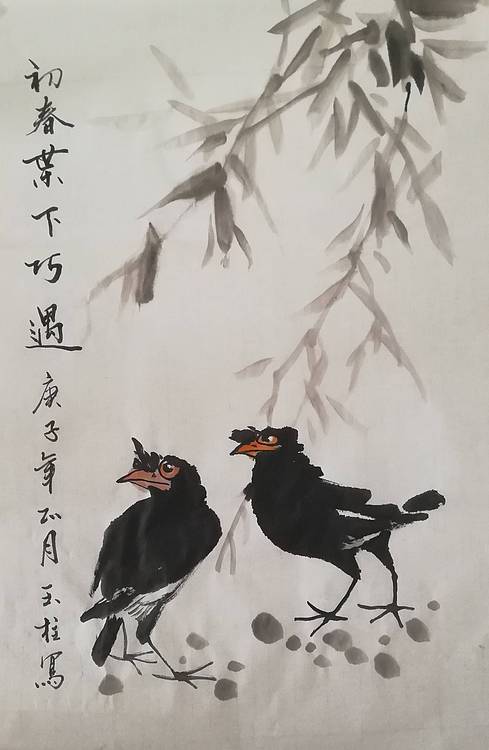 初春葉下巧遇庚子年正月玉柱寫